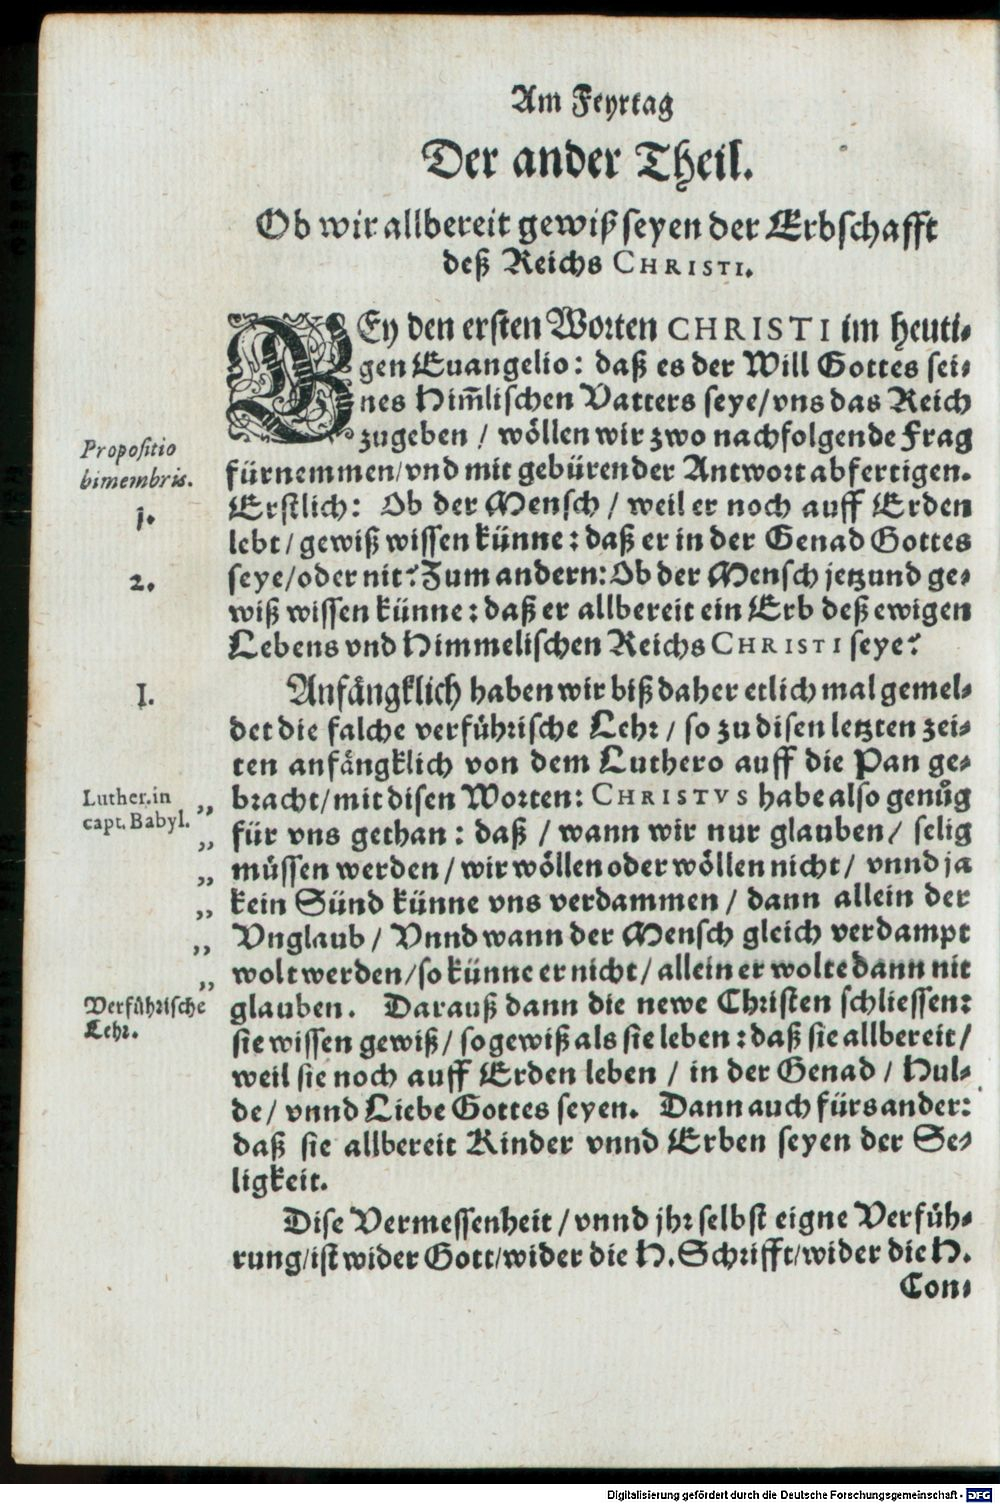 Am Feyrtag
Der ander Theil.
Ob wir allbereit gewiß seyen der Erbschafft
deß Reichs CHRISTI.
BEy den ersten Worten CHRISTI im heuti-
gen Euangelio: daß es der Will Gottes sei-
nes Him̃lischen Vatters seye/vns das Reich
zugeben / wöllen wir zwo nachfolgende Frag
Propositio
bimembris.
fürnemmen/vnd mit gebürender Antwort abfertigen.
Erstlich: Ob der Mensch / weil er noch auff Erden
1.
lebt / gewiß wissen künne: daß er in der Genad Gottes
2.
seye/oder nit? Zum andern: Ob der Mensch jetzund ge-
wiß wissen künne: daß er allbereit ein Erb deß ewigen
Lebens vnd Himmelischen Reichs CHRISTI seye?
I.
Anfängklich haben wir biß daher etlich mal gemel-
det die falche verführische Lehr / so zu disen letzten zei-
ten anfängklich von dem Luthero auff die Pan ge-
Luther. in
capt. Babyl.
„ bracht/mit disen Worten: CHRISTVS habe also genůg
„ für vns gethan: daß / wann wir nur glauben/ selig
„ müssen werden / wir wöllen oder wöllen nicht / vnnd ja
„ kein Sünd künne vns verdammen / dann allein der
„ Vnglaub / Vnnd wann der Mensch gleich verdampt
„ wolt werden/so künne er nicht / allein er wolte dann nit
Verführische
Lehr.
glauben. Darauß dann die newe Christen schliessen:
sie wissen gewiß/ so gewiß als sie leben: daß sie allbereit/
weil sie noch auff Erden leben / in der Genad / Hul-
de/ vnnd Liebe Gottes seyen. Dann auch fürs ander:
daß sie allbereit Kinder vnnd Erben seyen der Se-
ligkeit.
Dise Vermessenheit / vnnd jhr selbst eigne Verfüh-
rung/ist wider Gott/wider die H. Schrifft/wider die H.
Con-
Digitalisierung gefördert durch die Deutsche Forschungsgemeinschaft - DFG